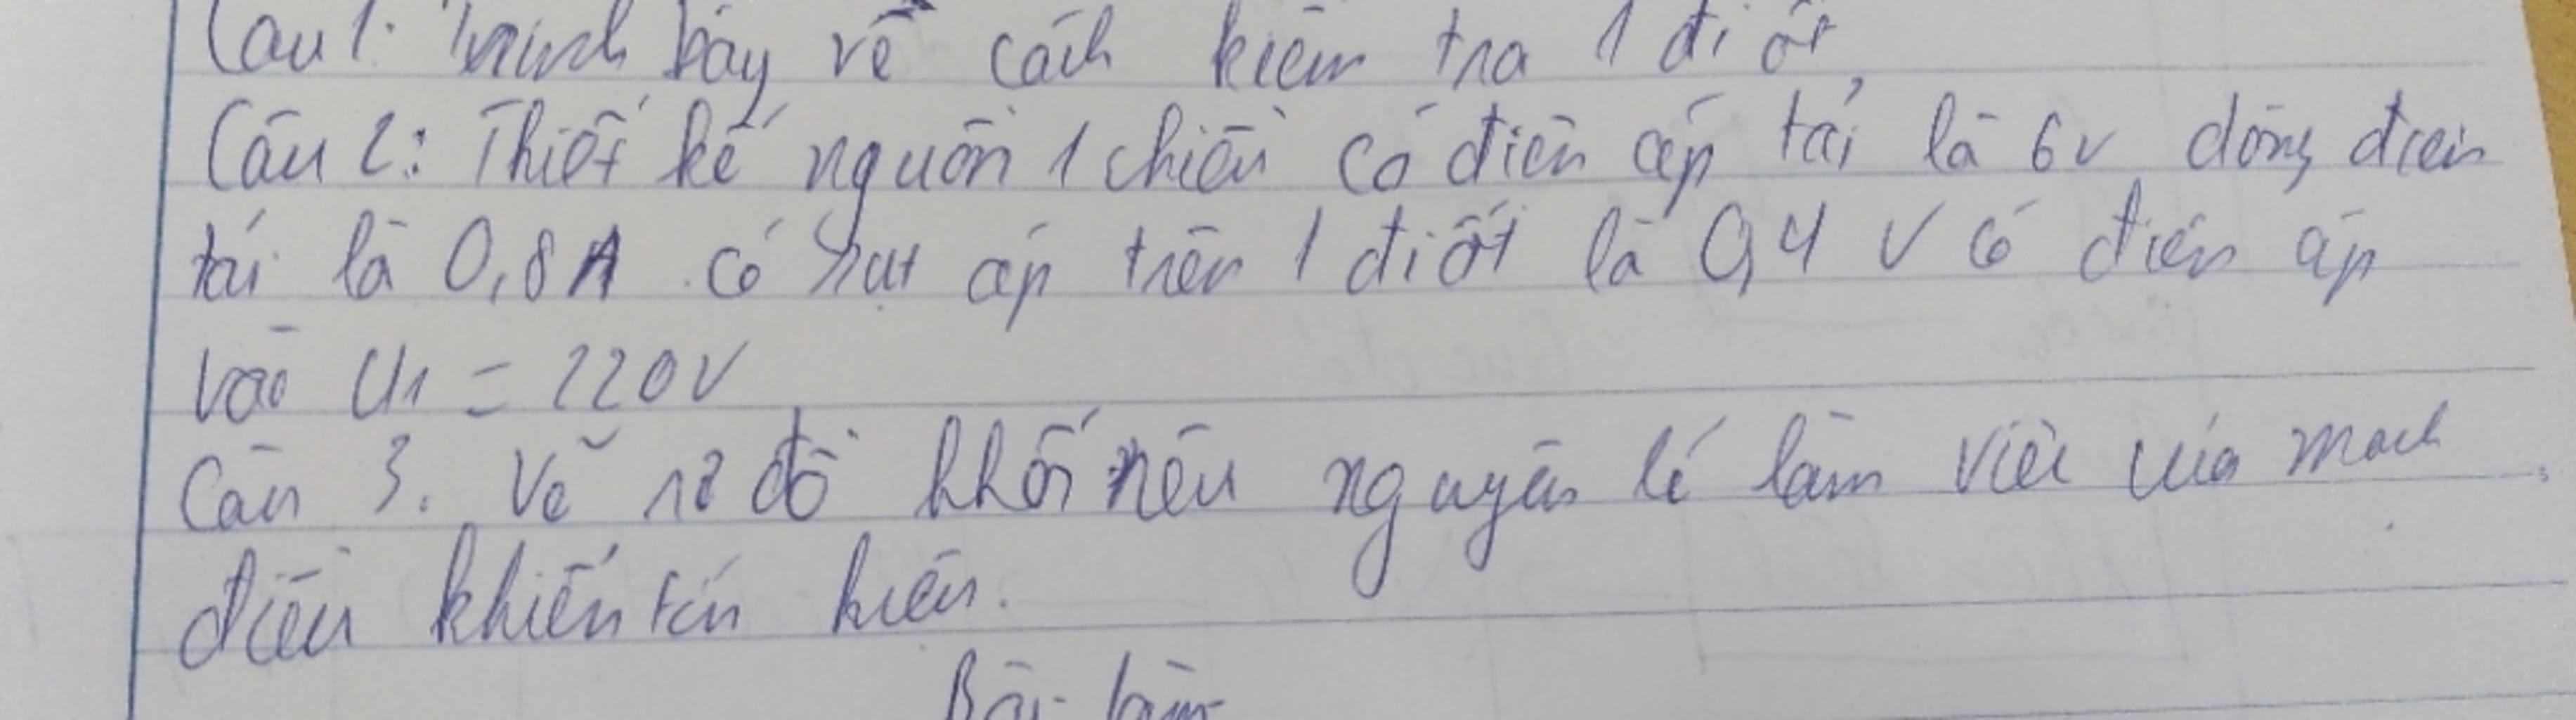 Câu 1: Trình bày về cách kiểm tra 1 đi ốt
Câu 2: Thiết kế nguồn 1 chiều có điện áp tải là 6v dòng điện
tải là 0,8A có sụt áp trên 1 điốt là 0,4 V có điện áp
vào U1 = 220V
Câu 3. Vẽ sơ đồ khối nêu nguyên lí làm việc của mạch
điều khiển tín hiệu.
Bài làm